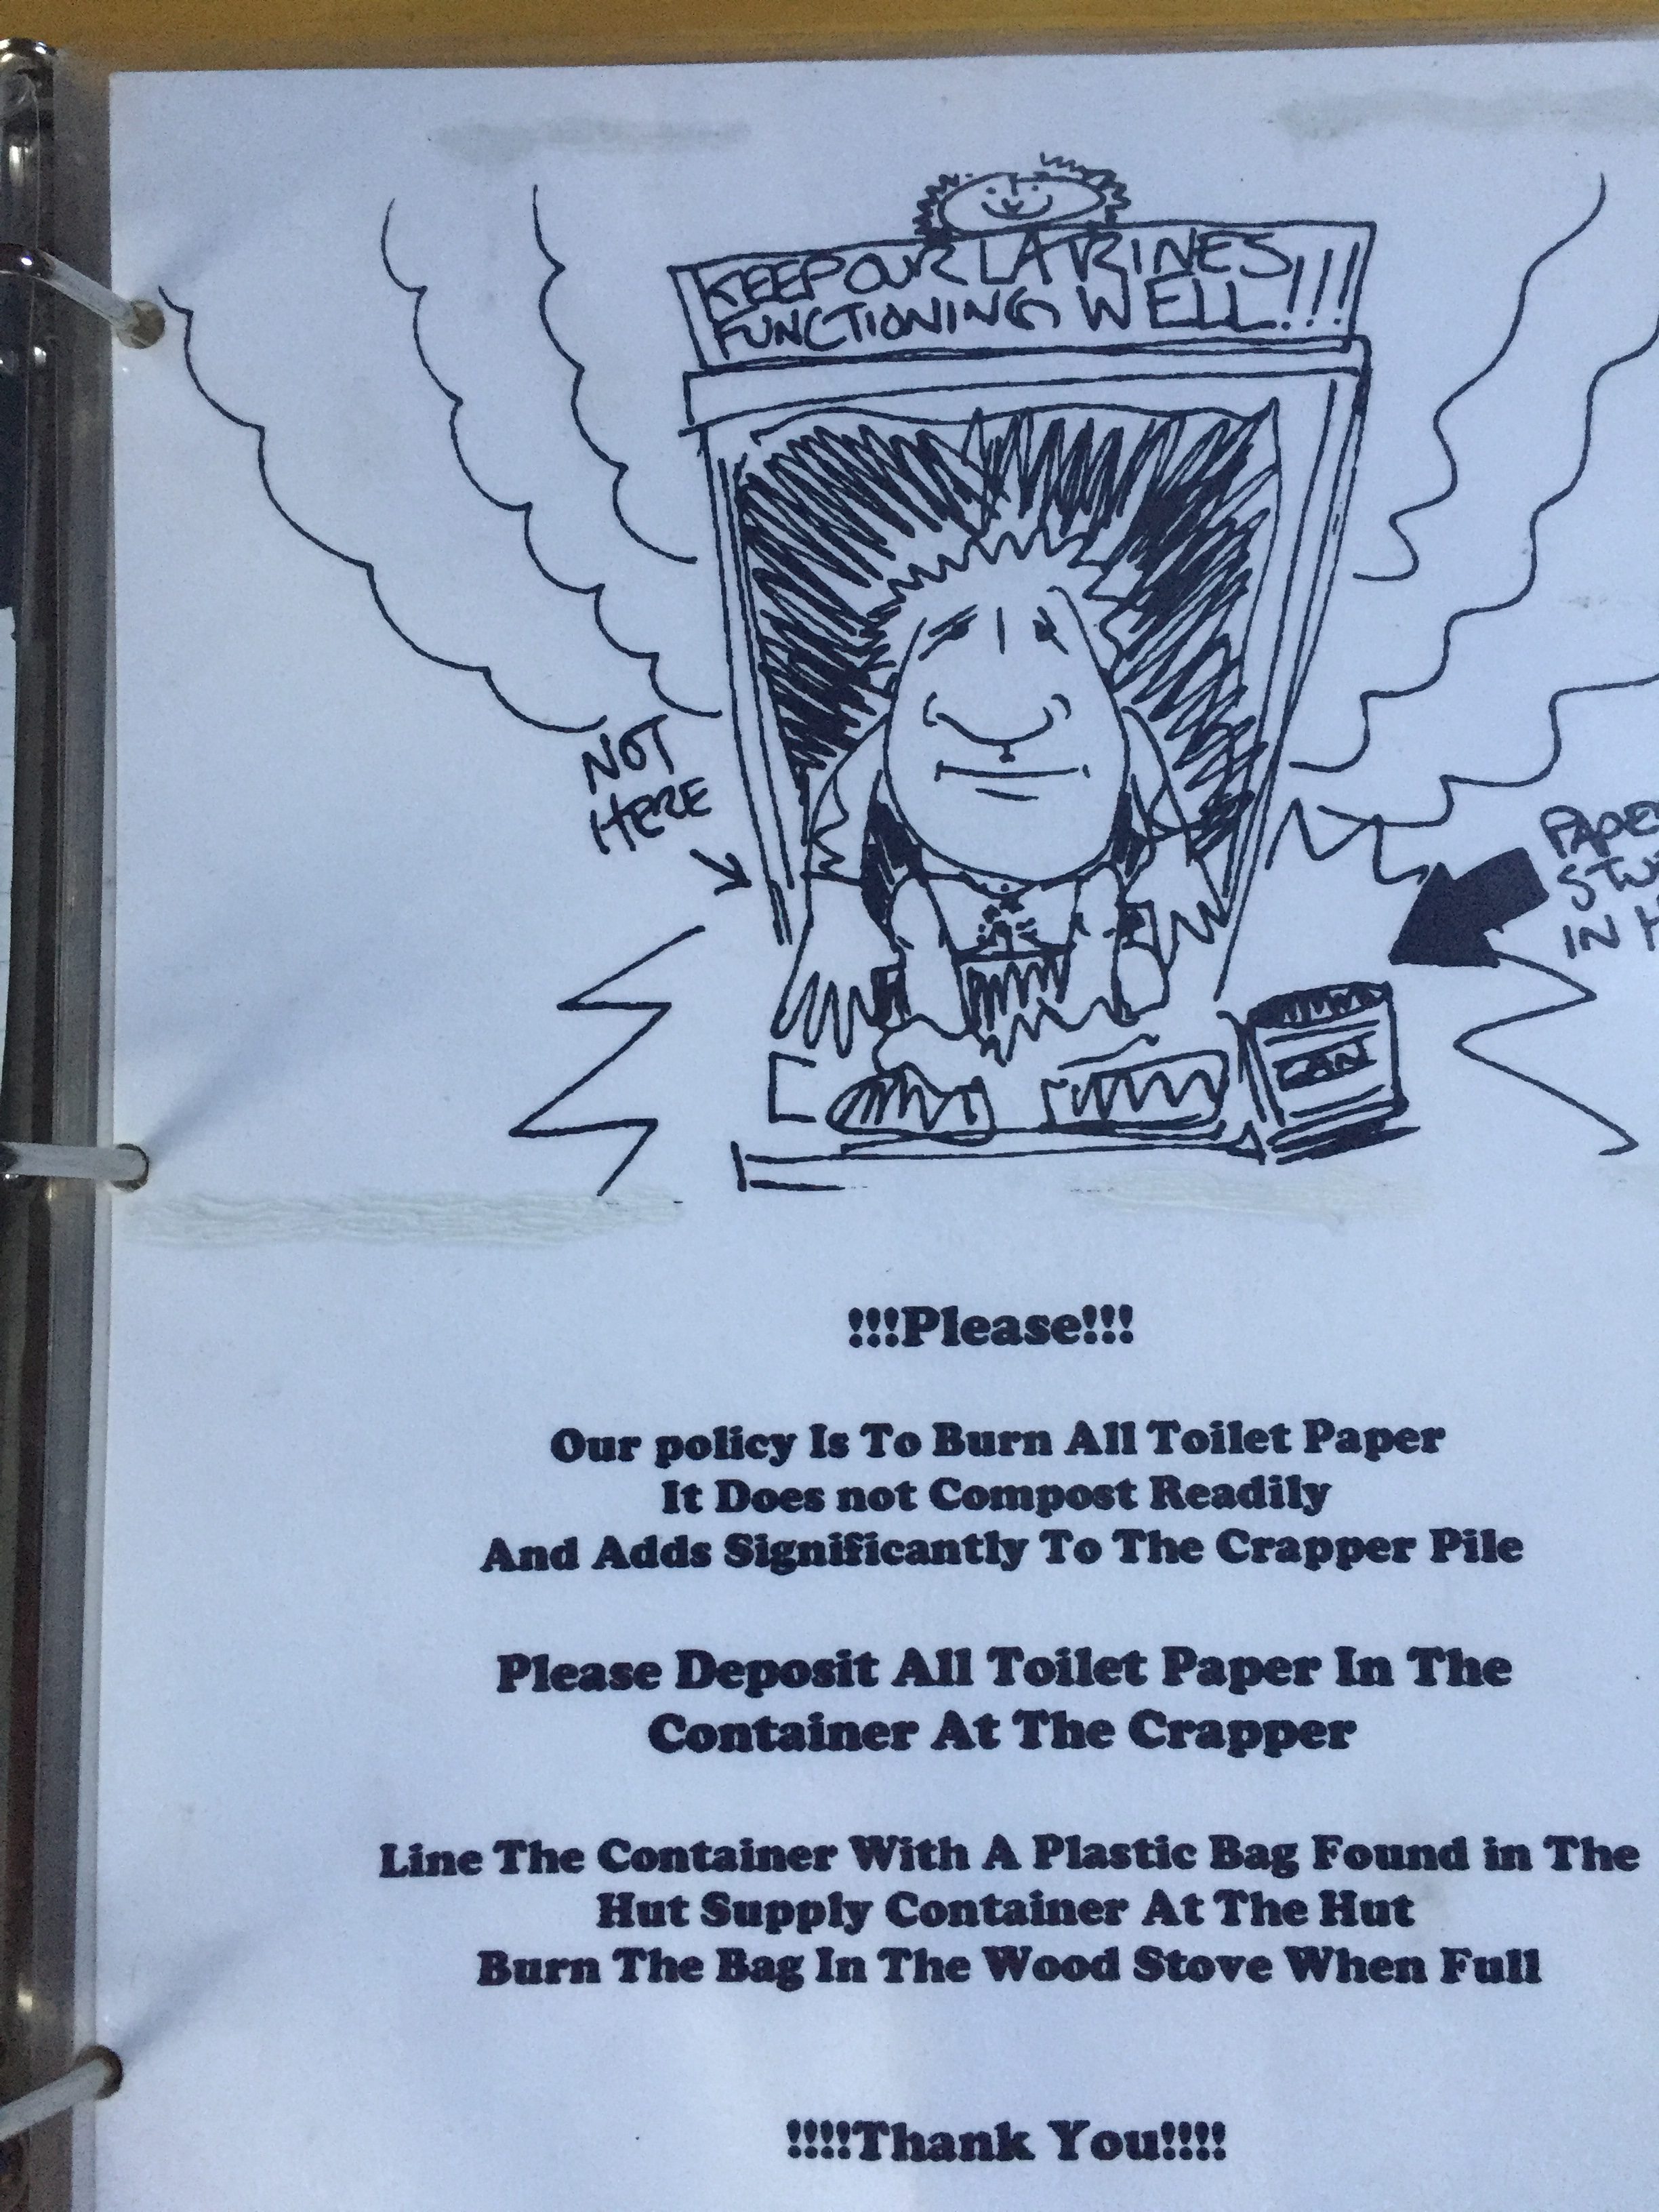 KEEP OUR LATRINES
FUNCTIONING WELL!!!
NOT
HERE
IN
CAN
!!!Please!!!
Our policy Is To Burn All Toilet Paper
It Does not Compost Readily
And Adds Significantly To The Crapper Pile
Please Deposit All Toilet Paper In The
Container At The Crapper
Line The Container With A Plastic Bag Found in The
Hut Supply Container At The Hut
Burn The Bag In The Wood Stove When Full
!!!!Thank You!!!!